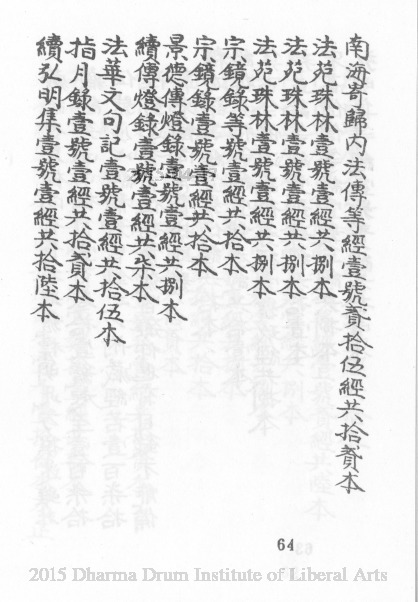 南海寄歸內法傳等經壹號貳拾伍經共拾貳本
法苑珠林壹號壹經共捌本
法苑珠林壹號壹經共捌本
法苑珠林壹號壹經共捌本
宗鏡錄等號壹經共拾本
宗鏡錄壹號壹經共拾本
景德傳燈錄壹號壹經共捌本
續傳燈錄壹號壹經共柒本
法華文句記壹號壹經共拾伍本
指月錄壹號壹經共拾貳本
續弘明集壹號壹經共拾陸本
64
2015 Dharma Drum Institute of Liberal Arts